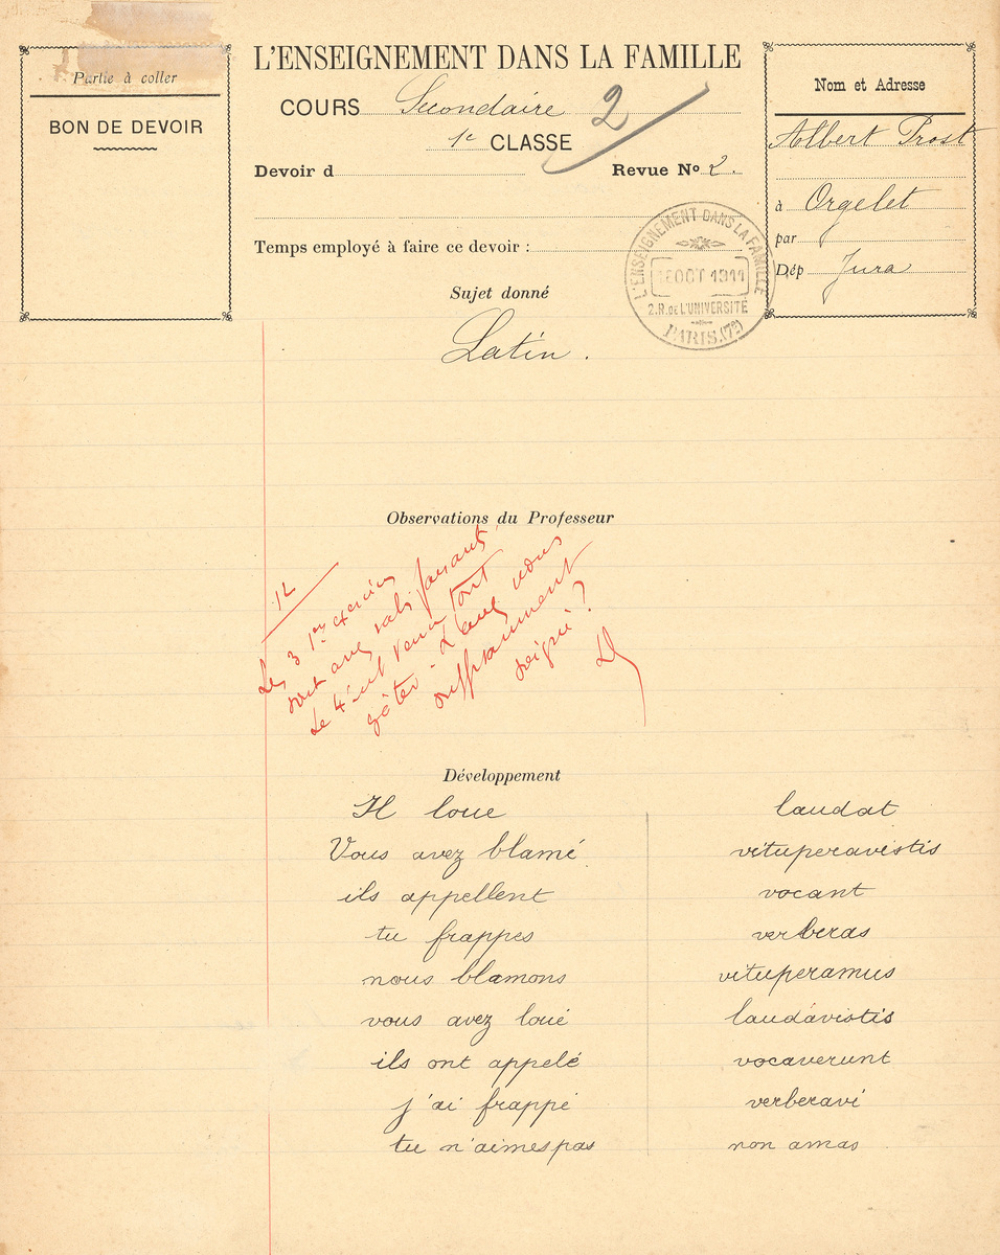 Partie à coller
BON DE DEVOIR
L'ENSEIGNEMENT DANS LA FAMILLE
COURS Secondaire 2
1e CLASSE
Devoir d
Revue No 2.
Temps employé à faire ce devoir :
Nom et Adresse
Albert Prost
à Orgelet
par
Dép Jura
L'ENSEIGNEMENT DANS LA FAMILLE
OCT 1911
2.R.DE L'UNIVERSITÉ
PARIS.(7e)
Sujet donné
Latin.
Observations du Professeur
12
Les 3 1ers exercices
sont assez satisfaisants,
Le 4e est venu tout
gâter. L'avez vous
suffisamment
soigné ?
Développement
Il loue laudat
Vous avez blamé vituperavistis
ils appellent vocant
tu frappes verberas
nous blamons vituperamus
vous avez loué laudávistis
ils ont appelé vocaverunt
j'ai frappé verberavi
tu n'aimes pas non amas